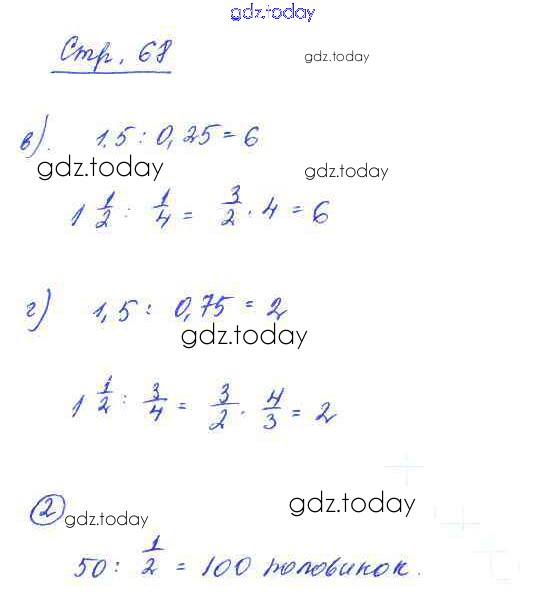 gdz.today
Стр. 68 gdz.today
в). 1.5 : 0,25 = 6
gdz.today gdz.today
1 1/2 : 1/4 = 3/2 · 4 = 6
г) 1,5 : 0,75 = 2
gdz.today
1 1/2 : 3/4 = 3/2 · 4/3 = 2
2 gdz.today gdz.today
50 : 1/2 = 100 половинок.